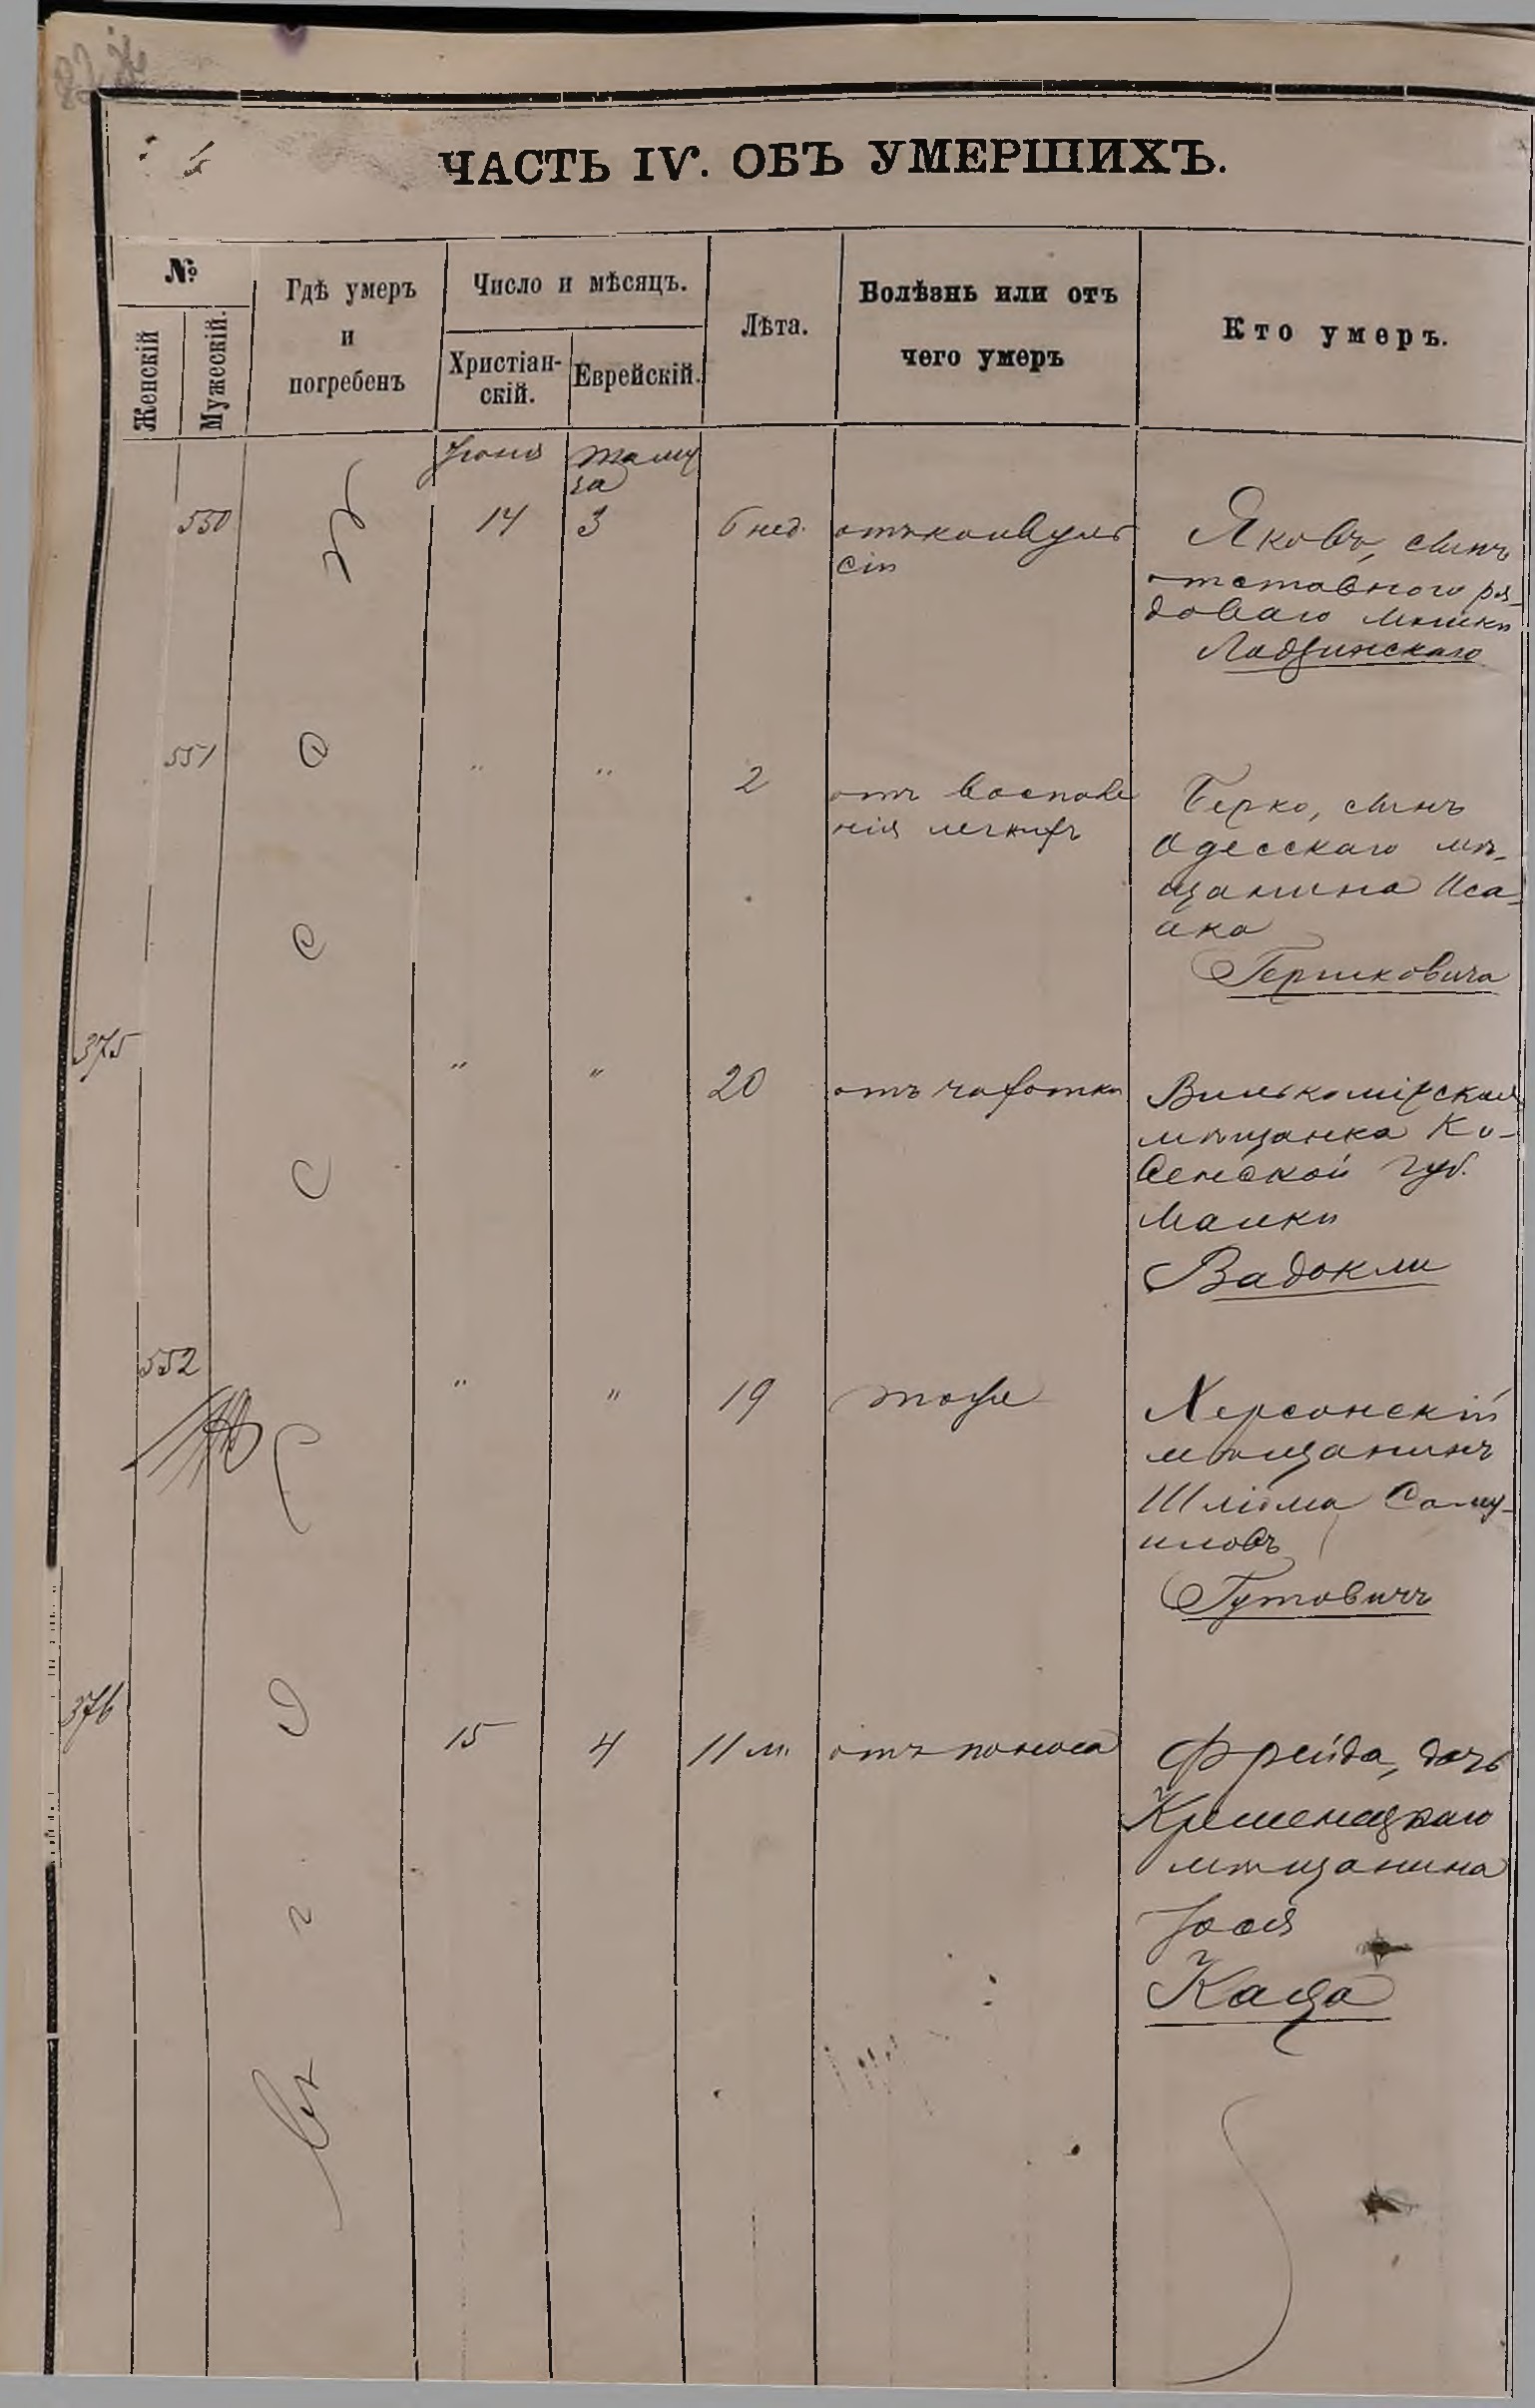 ЧАСТЬ IV. ОБЪ УМЕРШИХЪ.
№
Женскій
Мужескій.
Гдѣ умеръ
и
погребенъ
Число и мѣсяцъ.
Христіан-
скій.
Еврейскій.
Лѣта.
Болѣзнь или отъ
чего умеръ
Кто умеръ.
Іюня Таму
за
550 14 3 6 нед. отъ конвуль
сіи
Яковъ, сынъ
отставного ря-
доваго Мошки
Ладзинскаго
551 " " 2 отъ воспале
нія легкихъ
Берко, сынъ
Одесскаго мѣ-
щанина Иса-
ака
Гершковича
375 " " 20 отъ чахотки
Вилькомірская
мѣщанка Ко-
венской губ.
Малки
Вадокли
552 " " 19 тоже
Херсонскій
мѣщанинъ
Шліома Саму-
иловъ
Гутовичъ
376 15 4 11 м. отъ поноса
Фрейда, дочь
Кременецкаго
мѣщанина
Іося
Каца
О
д
е
с
с